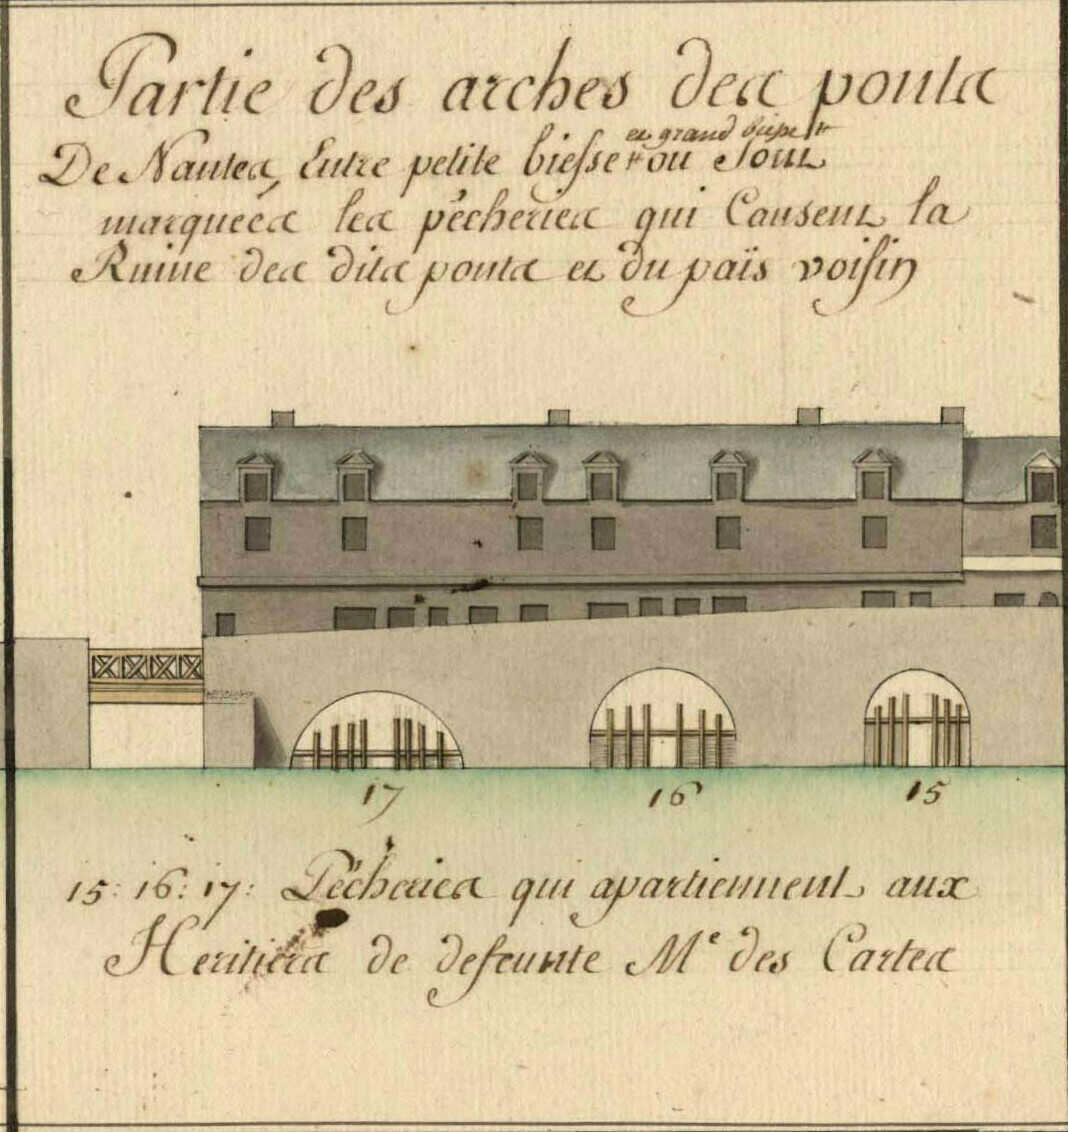 Partie des arches des ponts
De Nantes, Entre petite biesse ⵌ ou Sont
et grand biesse ⵌ
marqueés les pêcheries qui Causent la
Ruine des dits ponts et du païs voisin
17 16 15
15: 16: 17: Pêcheries qui apartiennent aux
Heritiers de defeunte Me des Cartes